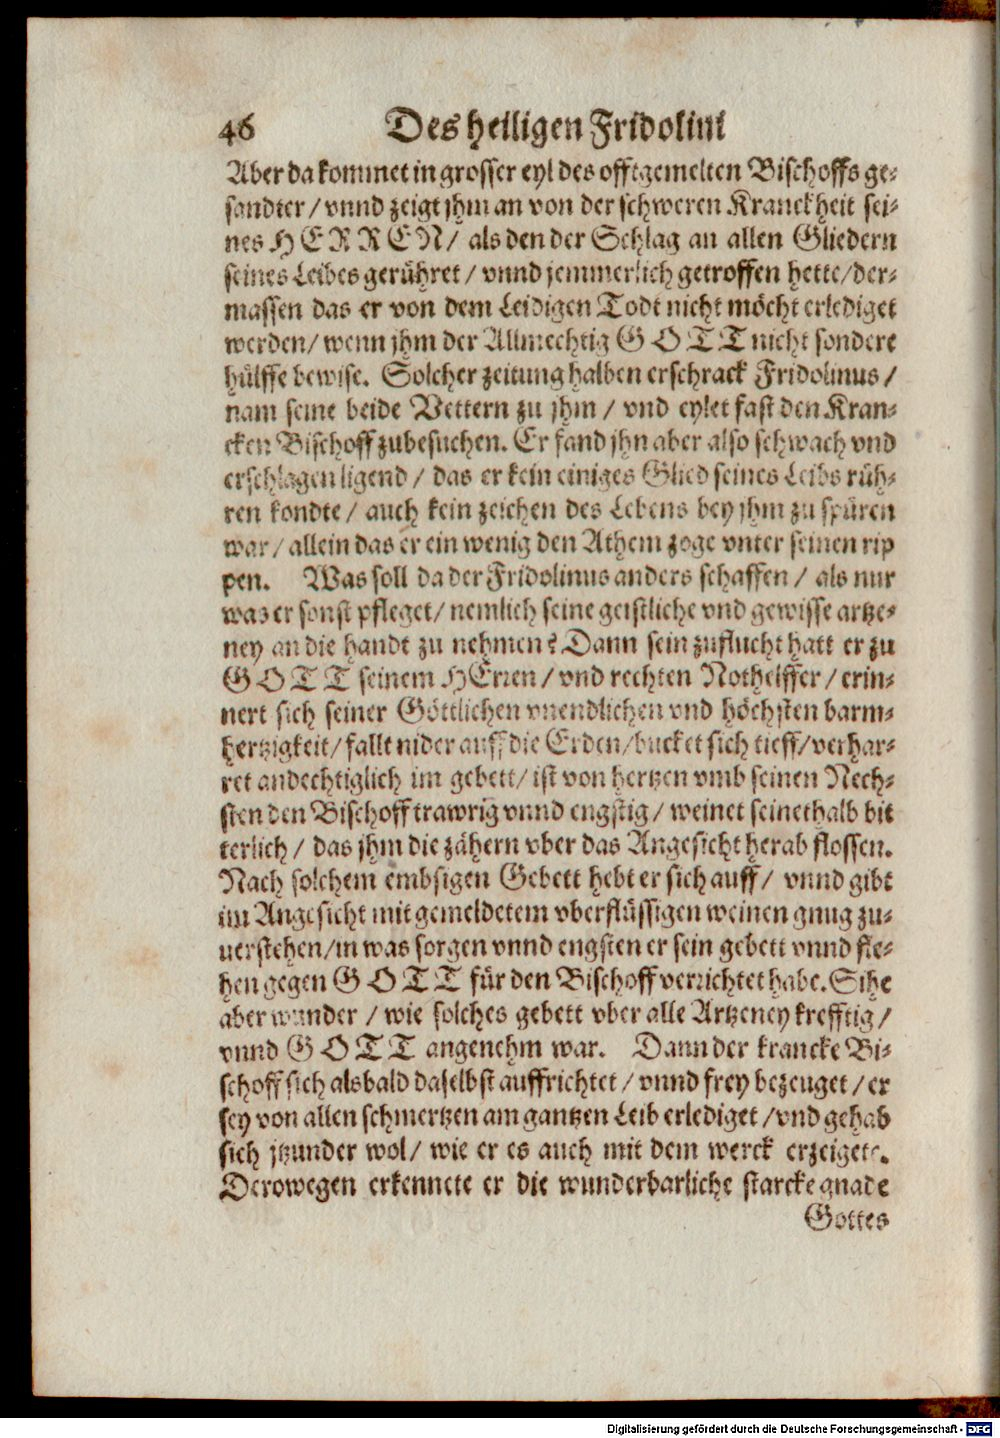 46 Des heiligen Fridolini
Aber da kommet in grosser eyl des offtgemelten Bischoffs ge-
sandter / vnnd zeigt jhm an von der schweren Kranckheit sei-
nes HERREN / als den der Schlag an allen Gliedern
seines Leibes gerühret / vnnd jemmerlich getroffen hette / der-
massen das er von dem Leidigen Todt nicht möcht erlediget
werden / wenn jhm der Allmechtig GOTT nicht sondere
hülffe bewise. Solcher zeitung halben erschrack Fridolinus /
nam seine beide Vettern zu jhm / vnd eylet fast den Kran-
cken Bischoff zubesuchen. Er fand jhn aber also schwach vnd
erschlagen ligend / das er kein einiges Glied seines Leibs rüh-
ren kondte / auch kein zeichen des Lebens bey jhm zu spüren
war / allein das er ein wenig den Athem zoge vnter seinen rip
pen. Was soll da der Fridolinus anders schaffen / als nur
was er sonst pfleget / nemlich seine geistliche vnd gewisse artze-
ney an die handt zu nehmen? Dann sein zuflucht hatt er zu
GOTT seinem HErren / vnd rechten Nothelffer / erin-
nert sich seiner Göttlichen vnendlichen vnd höchsten barm-
hertzigkeit / fallt nider auff die Erden / bucket sich tieff / verhar-
ret andechtiglich im gebett / ist von hertzen vmb seinen Nech-
sten den Bischoff trawrig vnnd engstig / weinet seinethalb bit
terlich / das jhm die zähern vber das Angesicht herab flossen.
Nach solchem embsigen Gebett hebt er sich auff / vnnd gibt
im Angesicht mit gemeldetem vberflüssigen weinen gnug zu-
uerstehen / in was sorgen vnnd engsten er sein gebett vnnd fle-
hen gegen GOTT für den Bischoff verrichtet habe. Sihe
aber wunder / wie solches gebett vber alle Artzeney krefftig /
vnnd GOTT angenehm war. Dann der krancke Bi-
schoff sich alsbald daselbst auffrichtet / vnnd frey bezeuget / er
sey von allen schmertzen am gantzen Leib erlediget / vnd gehab
sich jtzunder wol / wie er es auch mit dem werck erzeigete.
Derowegen erkennete er die wunderbarliche starcke gnade
Gottes
Digitalisierung gefördert durch die Deutsche Forschungsgemeinschaft - DFG